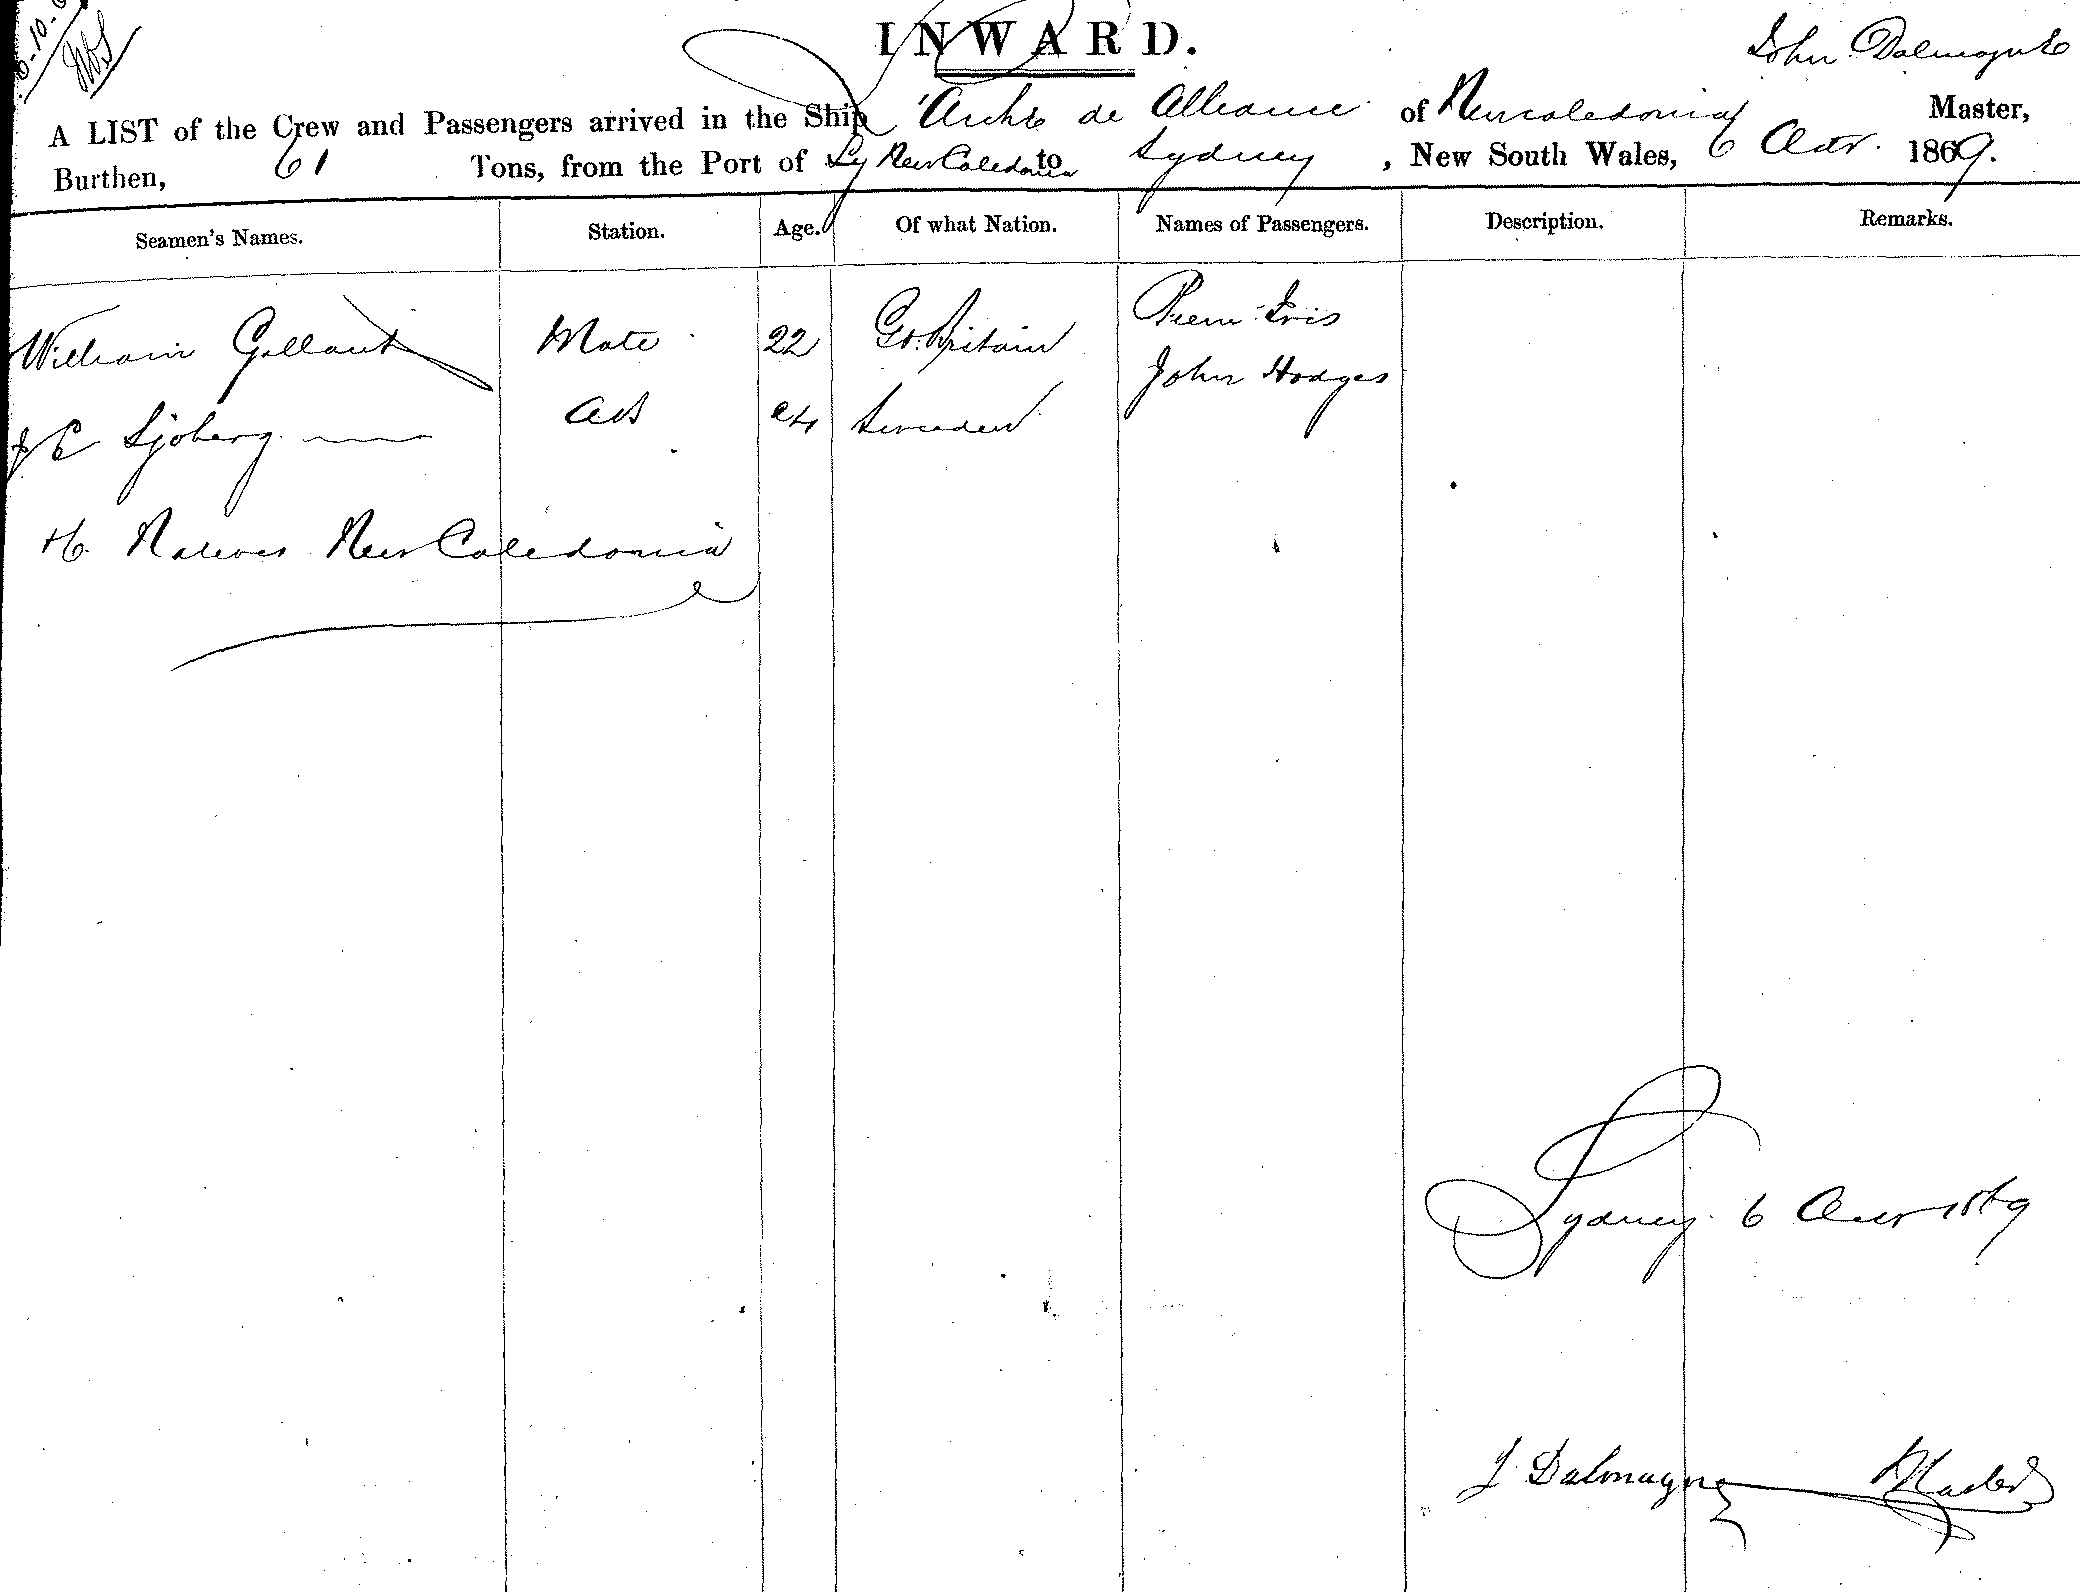 INWARD.
John Dalmayne
A LIST of the Crew and Passengers arrived in the Ship Arche de Alliance of New Caledonia Master,
Burthen, 61 Tons, from the Port of New Caledonia to Sydney, New South Wales, 6 Octr. 1869.
Seamen's Names. Station. Age. Of what Nation. Names of Passengers. Description. Remarks.
William Gallant Mate 22 Gt. Britain Pierre Iris
John Hodges
J E Sjoberg AB 24 Sweden
Natives New Caledonia
Sydney 6 Octr 1869
J Dalmayne Master